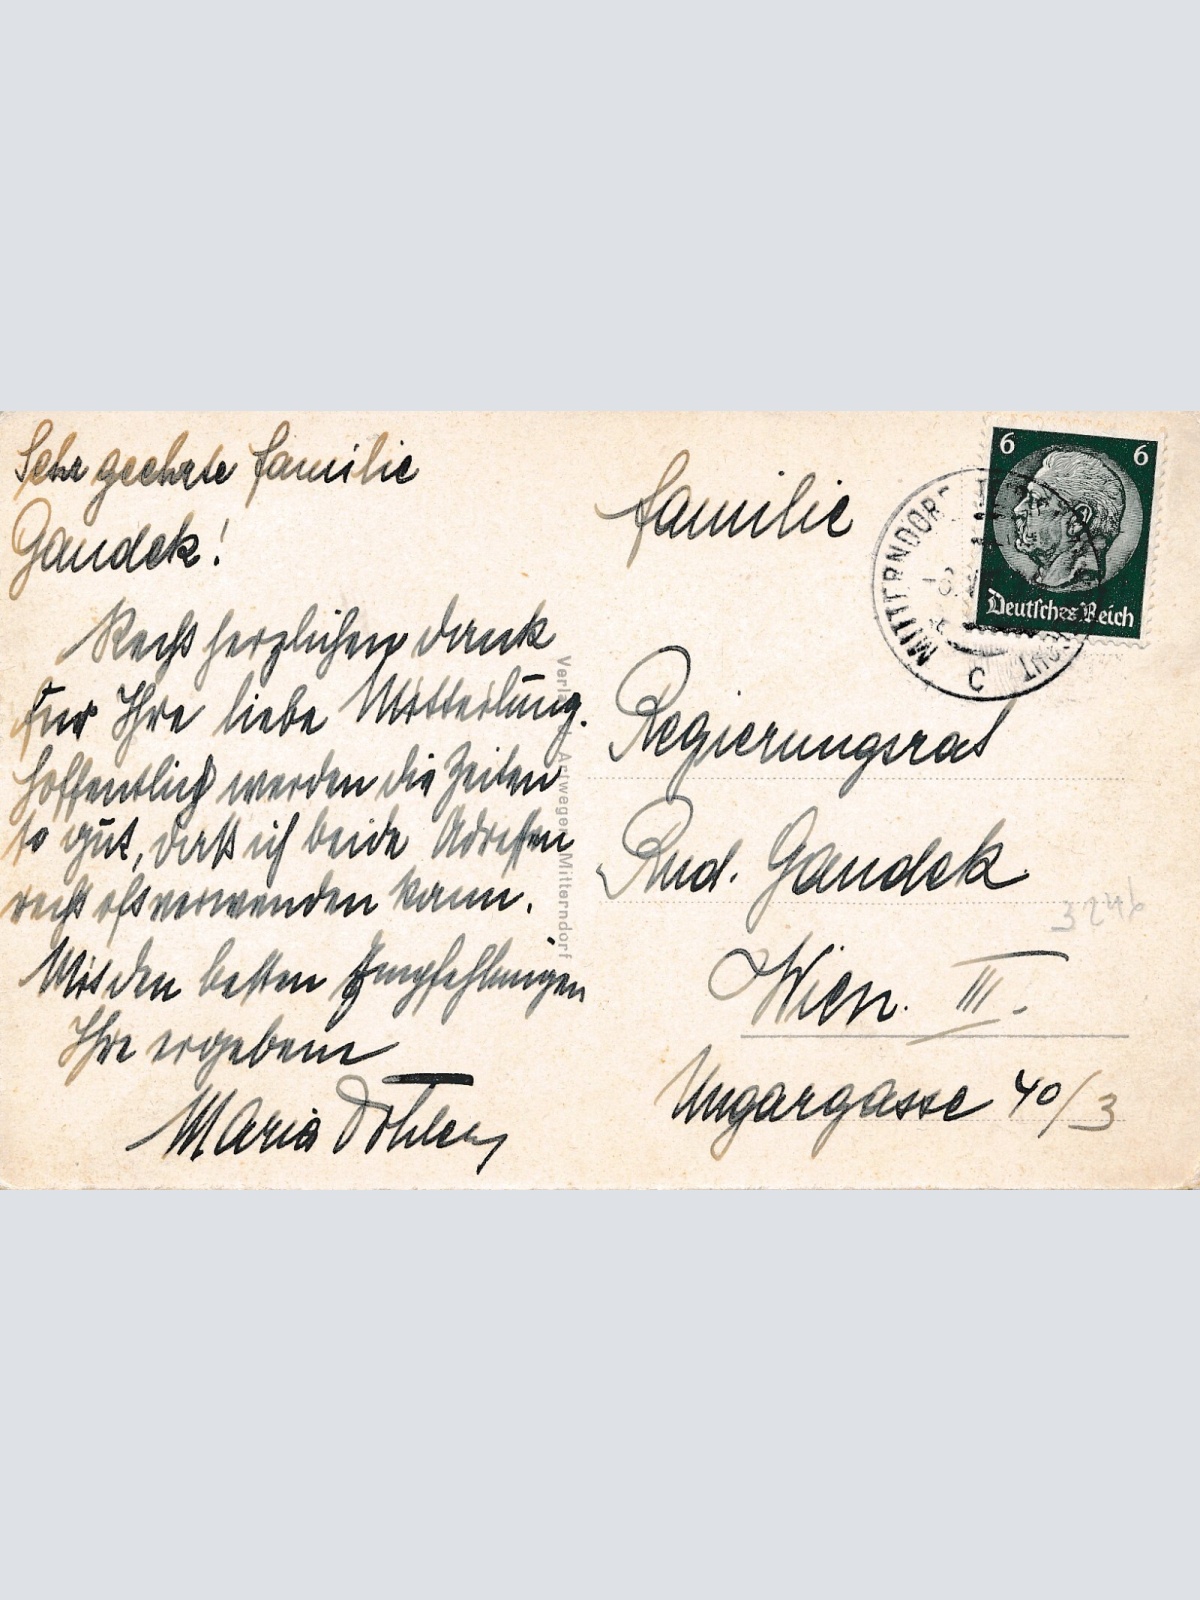 Sehr geehrte Familie
Gandek!
Recht herzlichen Dank
für Ihre liebe Mitteilung.
Hoffentlich werden die Zeiten
so gut, daß ich beide Adressen
recht oft verwenden kann.
Mit den besten Empfehlungen
Ihre ergebene
Maria
Verlag Mitterndorf
6 6
Deutsches Reich
MITTERNDORF
C
Familie
Regierungsrat
Rud. Gandek
Wien. III.
Ungargasse 40/3